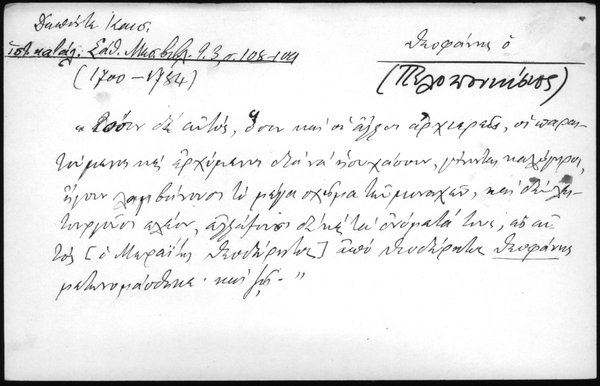 Δαπόντε Καισ.
ἱστ. κατάλ. Σάθ. Μεσ. βιβλ. τ. 3 σ. 108-109
(1700-1784)
Θεοφάνης ὁ
(Πελοποννήσιος)
δὲ αὐτός, ὅσον καὶ οἱ ἄλλοι ἀρχιερεῖς, οἱ παραι-
τούμενοι καὶ ἐρχόμενοι διὰ νὰ ἡσυχάσουν, γίνονται καλόγηροι,
ἤγουν λαμβάνουσι τὸ μέγα σχῆμα τῶν μοναχῶν, καὶ δὲν λει-
τουργοῦσι πλέον, ἀλλάζουσι δὲ καὶ τὰ ὀνόματά τους, ὡς αὐ-
τὸς [ὁ Θεοδώρητος] ἀπὸ Θεοδώρητος Θεοφάνης
μετωνομάσθηκε· καὶ ζῇ."